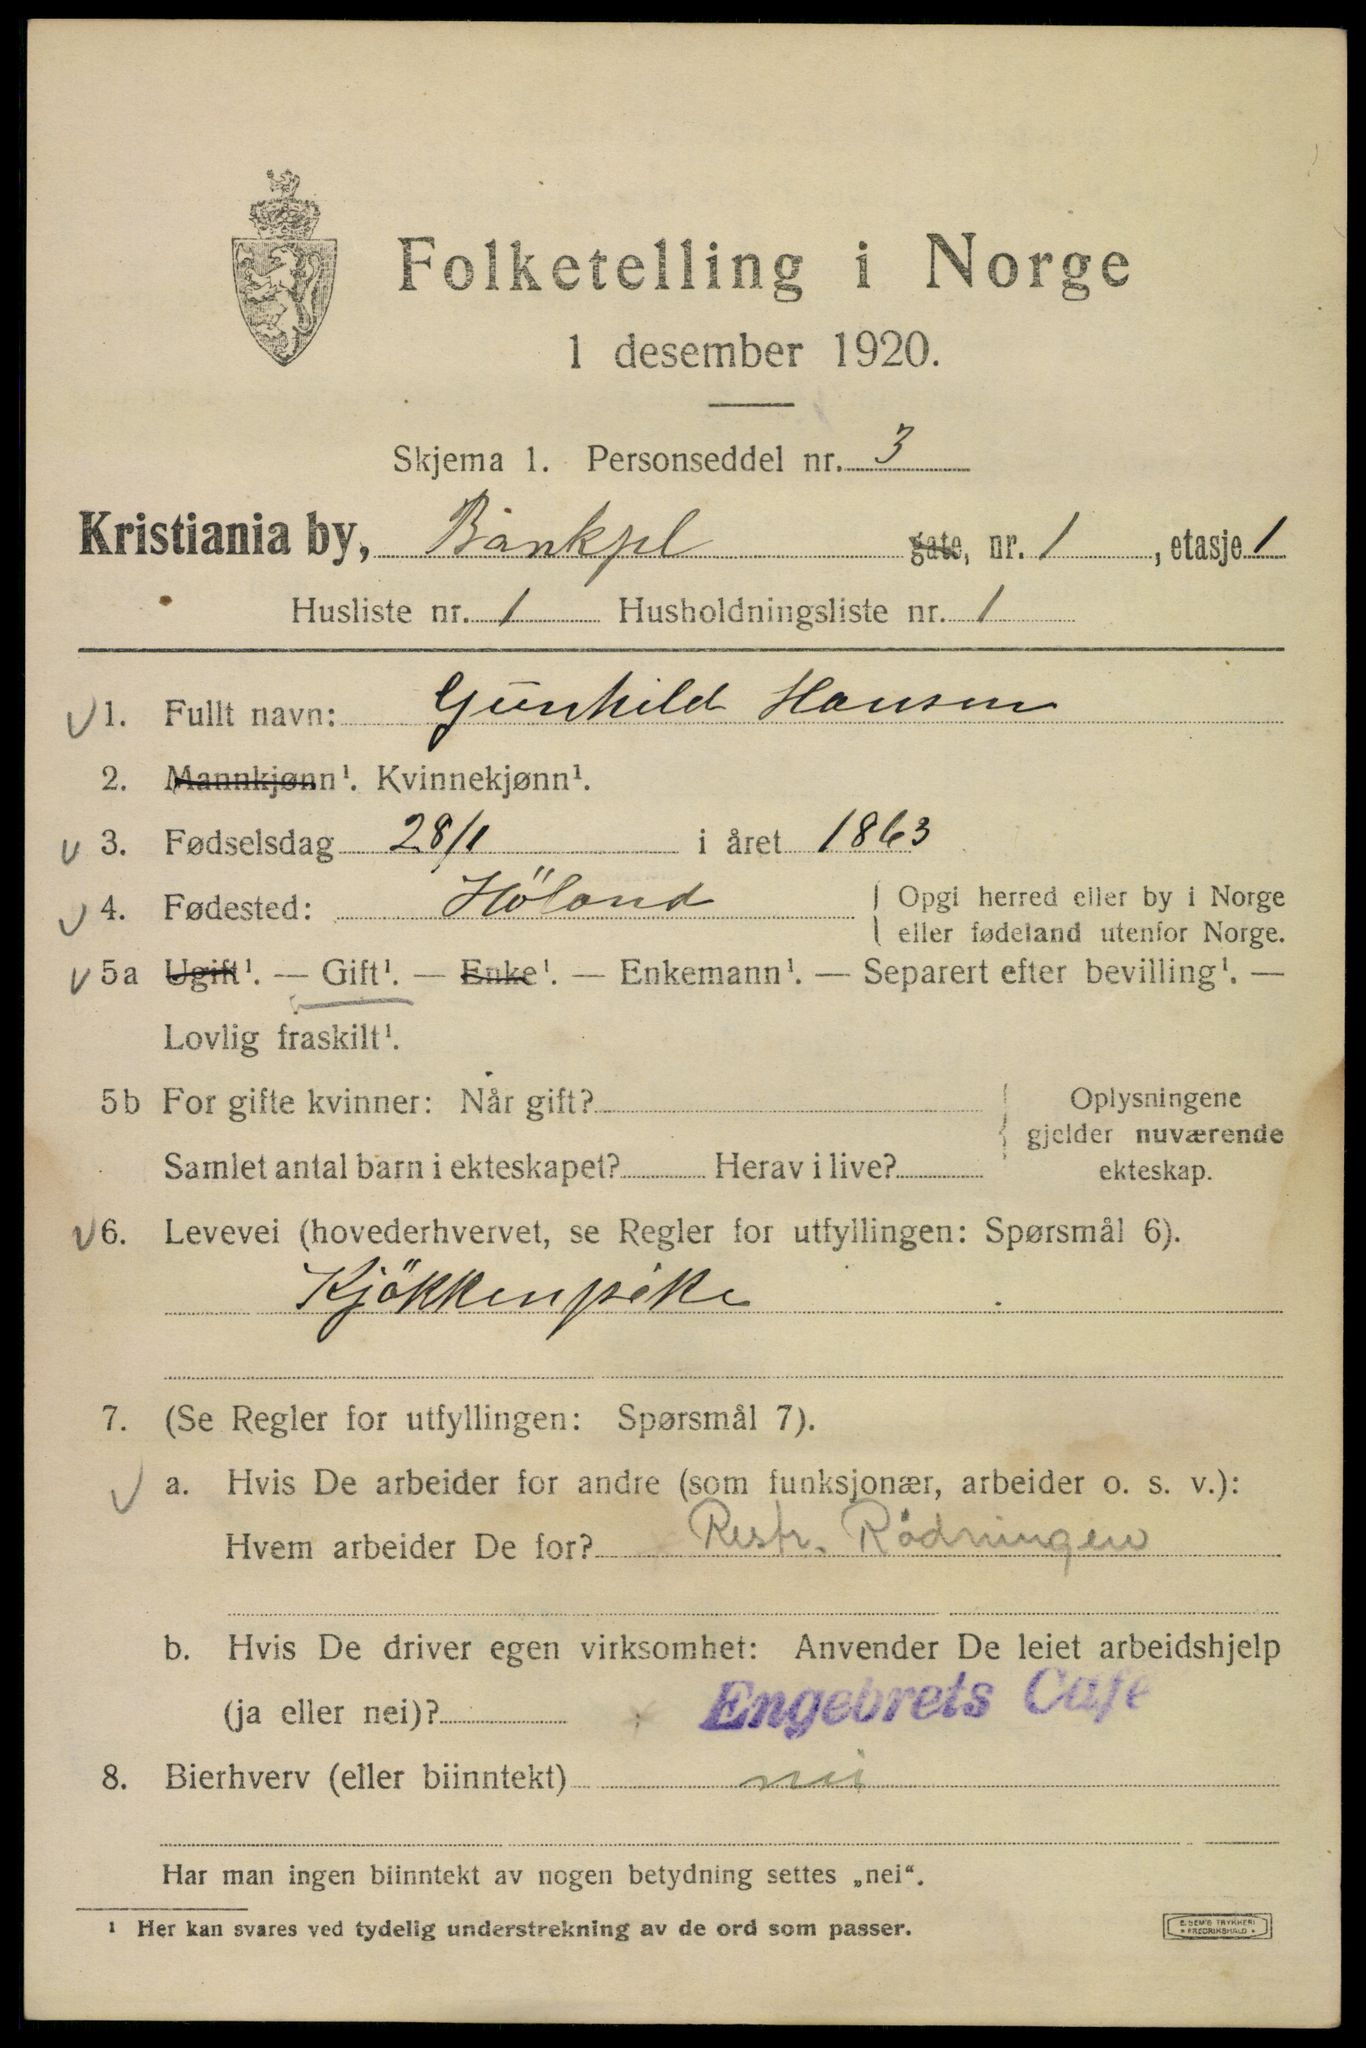 Folketelling i Norge
1 desember 1920.
Skjema 1. Personseddel nr. 3
Kristiania by, Bankpl gate, nr. 1, etasje 1
Husliste nr. 1 Husholdningsliste nr. 1
1. Fullt navn: Gunhild Hansen
2. Mannkjønn¹. Kvinnekjønn¹.
3. Fødselsdag 28/1 i året 1863
4. Fødested: Höland { Opgi herred eller by i Norge
eller fødeland utenfor Norge.
5a Ugift¹. — Gift¹. — Enke¹. — Enkemann¹. — Separert efter bevilling¹. —
Lovlig fraskilt¹.
5b For gifte kvinner: Når gift? { Oplysningene
gjelder nuværende
Samlet antal barn i ekteskapet? Herav i live? ekteskap.
6. Levevei (hovederhvervet, se Regler for utfyllingen: Spørsmål 6).
Kjökkenpike
7. (Se Regler for utfyllingen: Spørsmål 7).
a. Hvis De arbeider for andre (som funksjonær, arbeider o. s. v.):
Hvem arbeider De for? Restr. Rödningen
b. Hvis De driver egen virksomhet: Anvender De leiet arbeidshjelp
(ja eller nei)? Engebrets Café
8. Bierhverv (eller biinntekt) nei
Har man ingen biinntekt av nogen betydning settes „nei“.
¹ Her kan svares ved tydelig understrekning av de ord som passer.
E. SEM'S TRYKKERI
FREDRIKSHALD